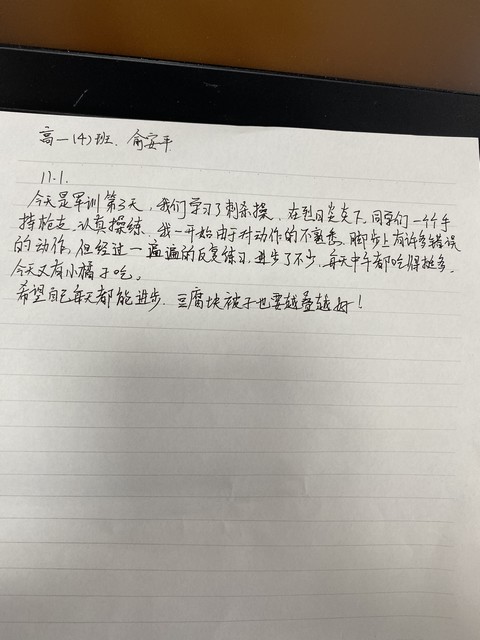 高一(4)班. 俞安平
11.1.
今天是军训第3天, 我们学习了刺杀操. 在烈日炎炎下, 同学们一个个手
持枪支, 认真操练. 我一开始由于对动作的不熟悉, 脚步上有许多错误
的动作, 但经过一遍遍的反复练习, 进步了不少, 每天中午都吃得挺多,
今天又有小橘子吃。
希望自己每天都能进步. 豆腐块被子也要越叠越好!